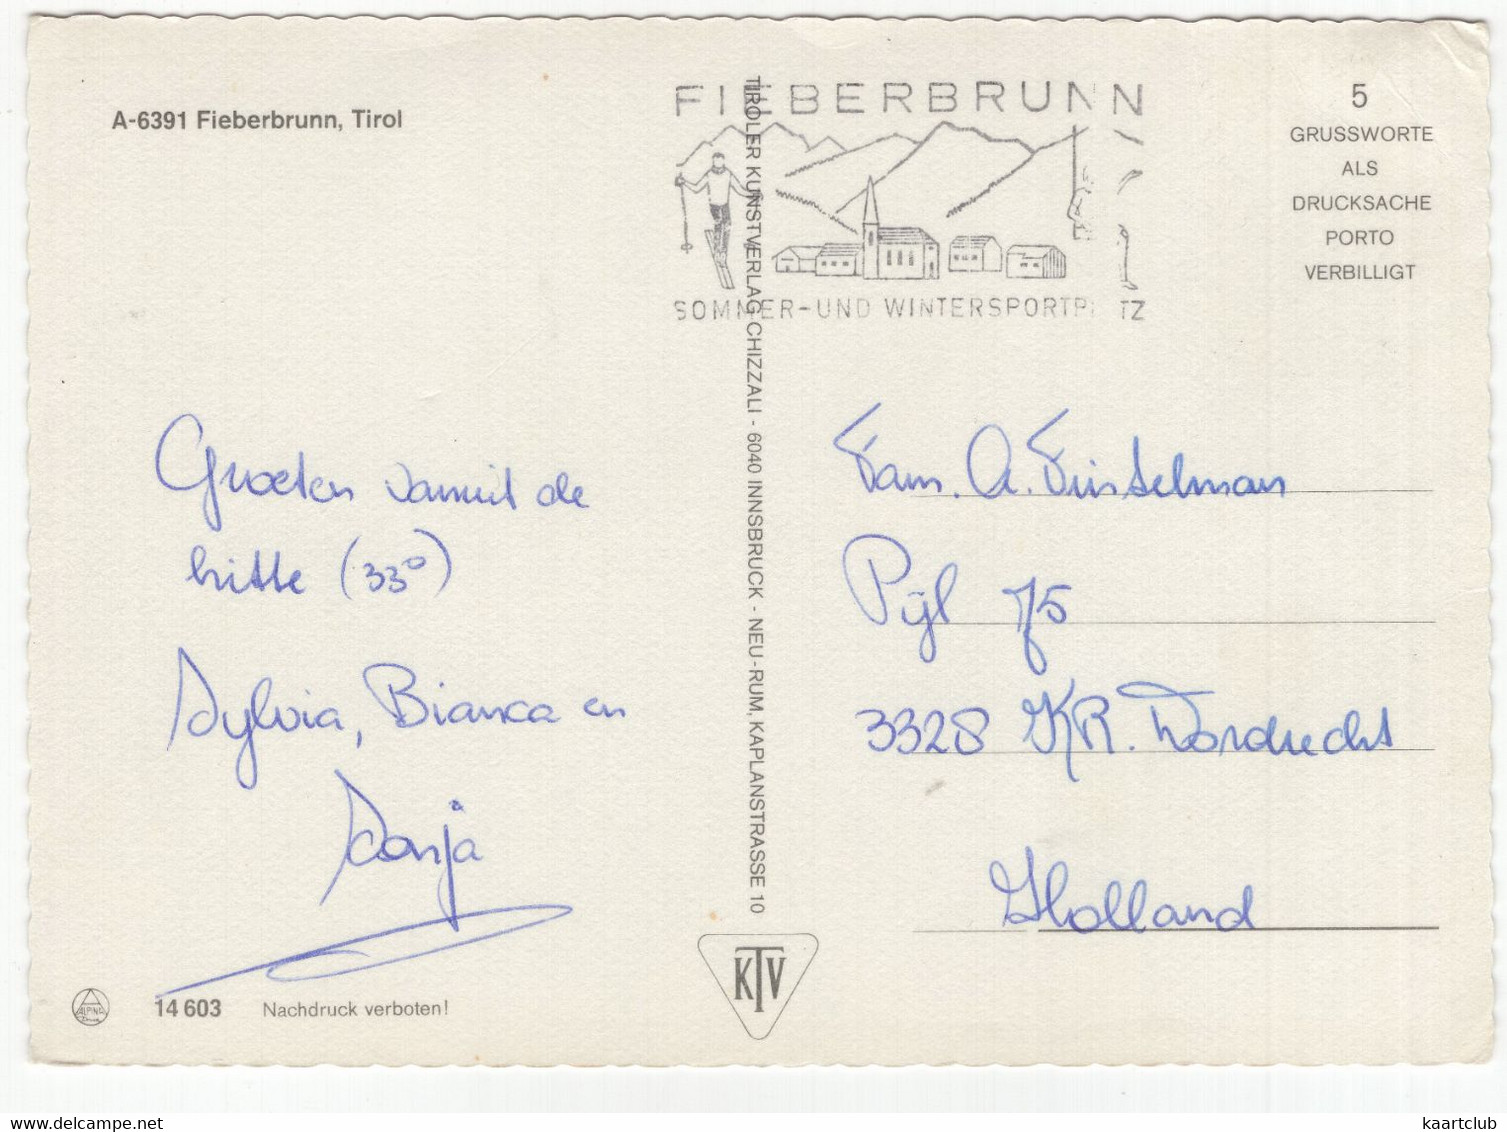 A-6391 Fieberbrunn, Tirol
FIEBERBRUNN
SOMMER-UND WINTERSPORTPLATZ
5
GRUSSWORTE
ALS
DRUCKSACHE
PORTO
VERBILLIGT
Groeten vanuit de
hitte (33°)
Sylvia, Bianca en
Sonja
TIROLER KUNSTVERLAG CHIZZALI - 6040 INNSBRUCK - NEU-RUM, KAPLANSTRASSE 10
Fam. A. Finselman
Pijl 75
3328 KR. Dordrecht
Holland
KTV
ALPINA
14 603 Nachdruck verboten!
delcampe.net
kaartclub